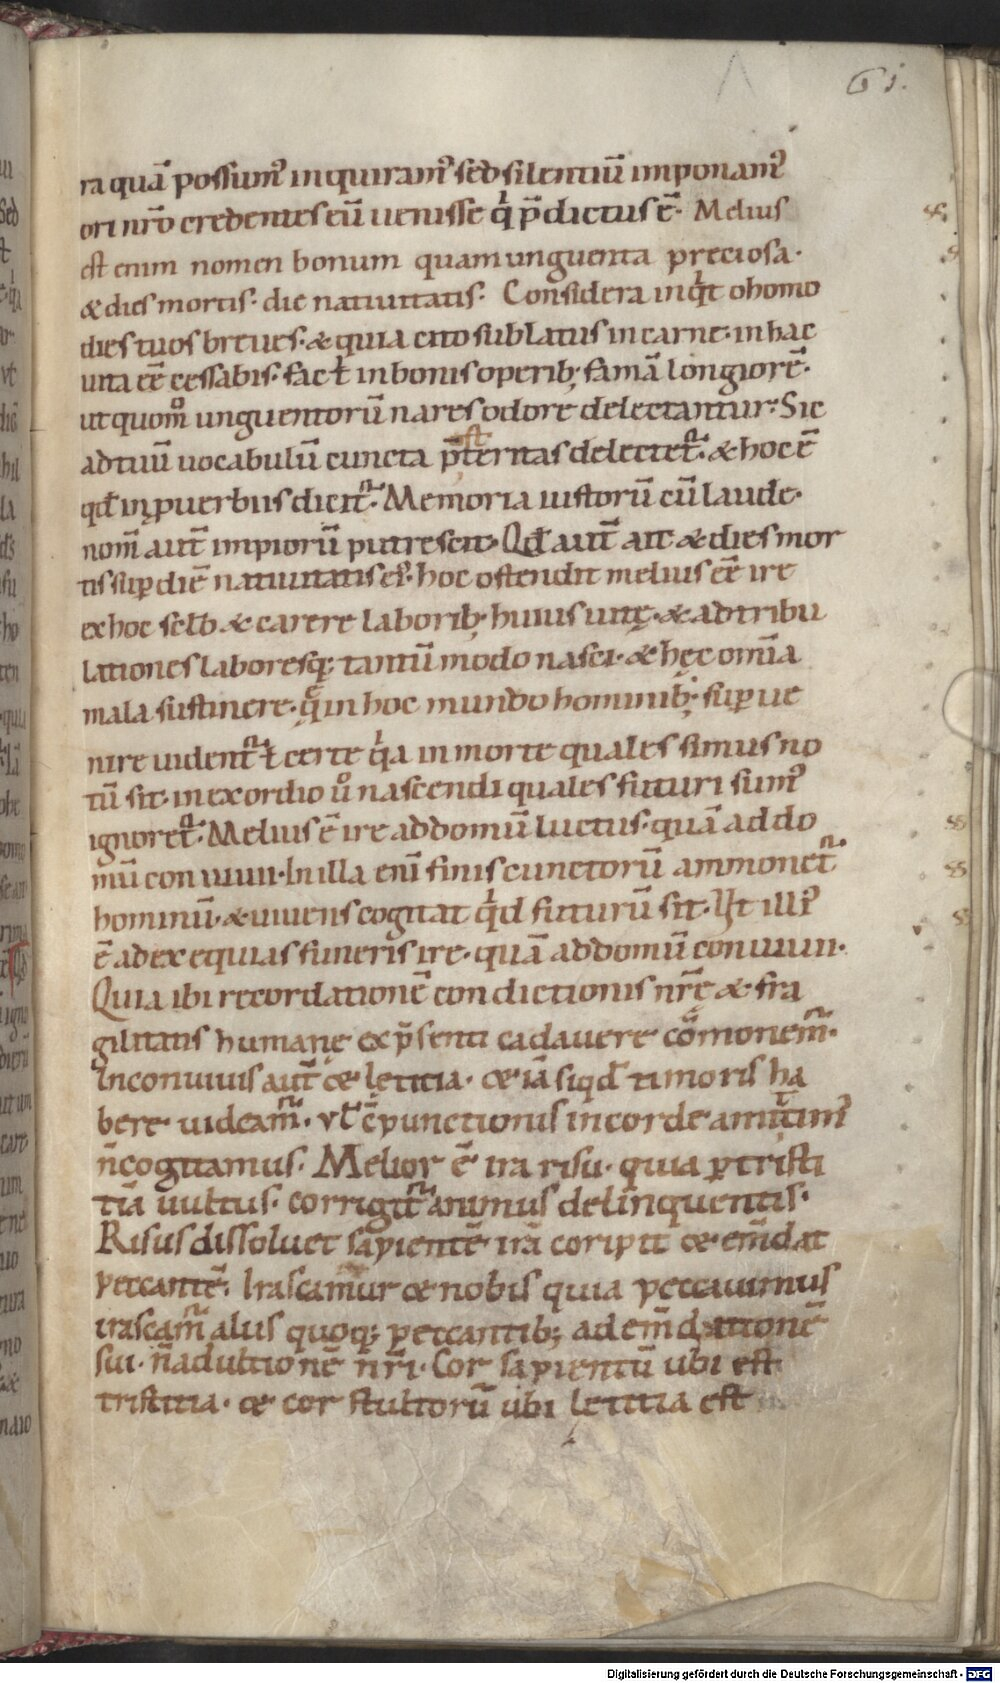 61.
ra quā possumꝰ inquiramꝰ sed silentiū imponamꝰ
ori nr̄o credentes eū uenisse qͥ p̄dictus ē. Melius
est enim nomen bonum quam unguenta preciosa.
& dies mortis. die natiuitatis. Considera inqͥt o homo
dies tuos breues. & quia cito sublatus in carne. in hac
uita eē cessabis. fac ł in bonis operib; famā longiorē.
ut quomᵒ unguentorū nares odore delectantur. Sic
ad tuū uocabulū cuncta p̄teritas delectet᷑. & hoc ē
qđ in ꝓuerbiis dicit᷑. Memoria iustorū cū laude.
nom̄ aut̄ impiorū putrescit. Qđ aut̄ ait & dies mor
tis suꝑ diē natiuitatis eiꝰ. hoc ostendit melius eē ire
ex hoc sclo & carere laborib; huius uitę. & ad tribu
lationes laboresq; tantū modo nasci. & hęc omīa
mala sustinere. q̄ in hoc mundo hominib; suꝑue
nire uident᷑ ł certe qͥa in morte quales simus no
tū sit. in exordio ůo nascendi quales futuri sumꝰ
ignoret᷑. Melius ē ire ad domū luctus. quā ad do
mū conuiuii. In illa enī finis cunctorū ammonet᷑
hominū. & uiuens cogitat qͥd futurū sit. Ut illiꝰ
ē ad exequias funeris ire. quā ad domū conuiuii.
Quia ibi recordationē condictionis nr̄ę & fra
gilitatis humanę ex p̄senti cadauere cōmonem᷑.
In conuiuiis aut̄ & letitia. & iā siqđ timoris ha
bere uideam᷑. vt c̄punctionis in corde amittimꝰ
n̄ cogitamus. Melior ē ira risu. quia ꝑ tristi
tiā uultus. corrigit᷑ animus delinquentis.
Risus dissoluet sapientē irā coripit & em̄dat
peccantē. Irascamur & nobis quia peccauimus
irascam᷑ aliis quoq; peccantib; ad em̄dationē
sui. n̄ ad ultionē nr̄i. Cor sapientū ubi est
tristitia. & cor stultorū ubi letitia est
Digitalisierung gefördert durch die Deutsche Forschungsgemeinschaft - DFG